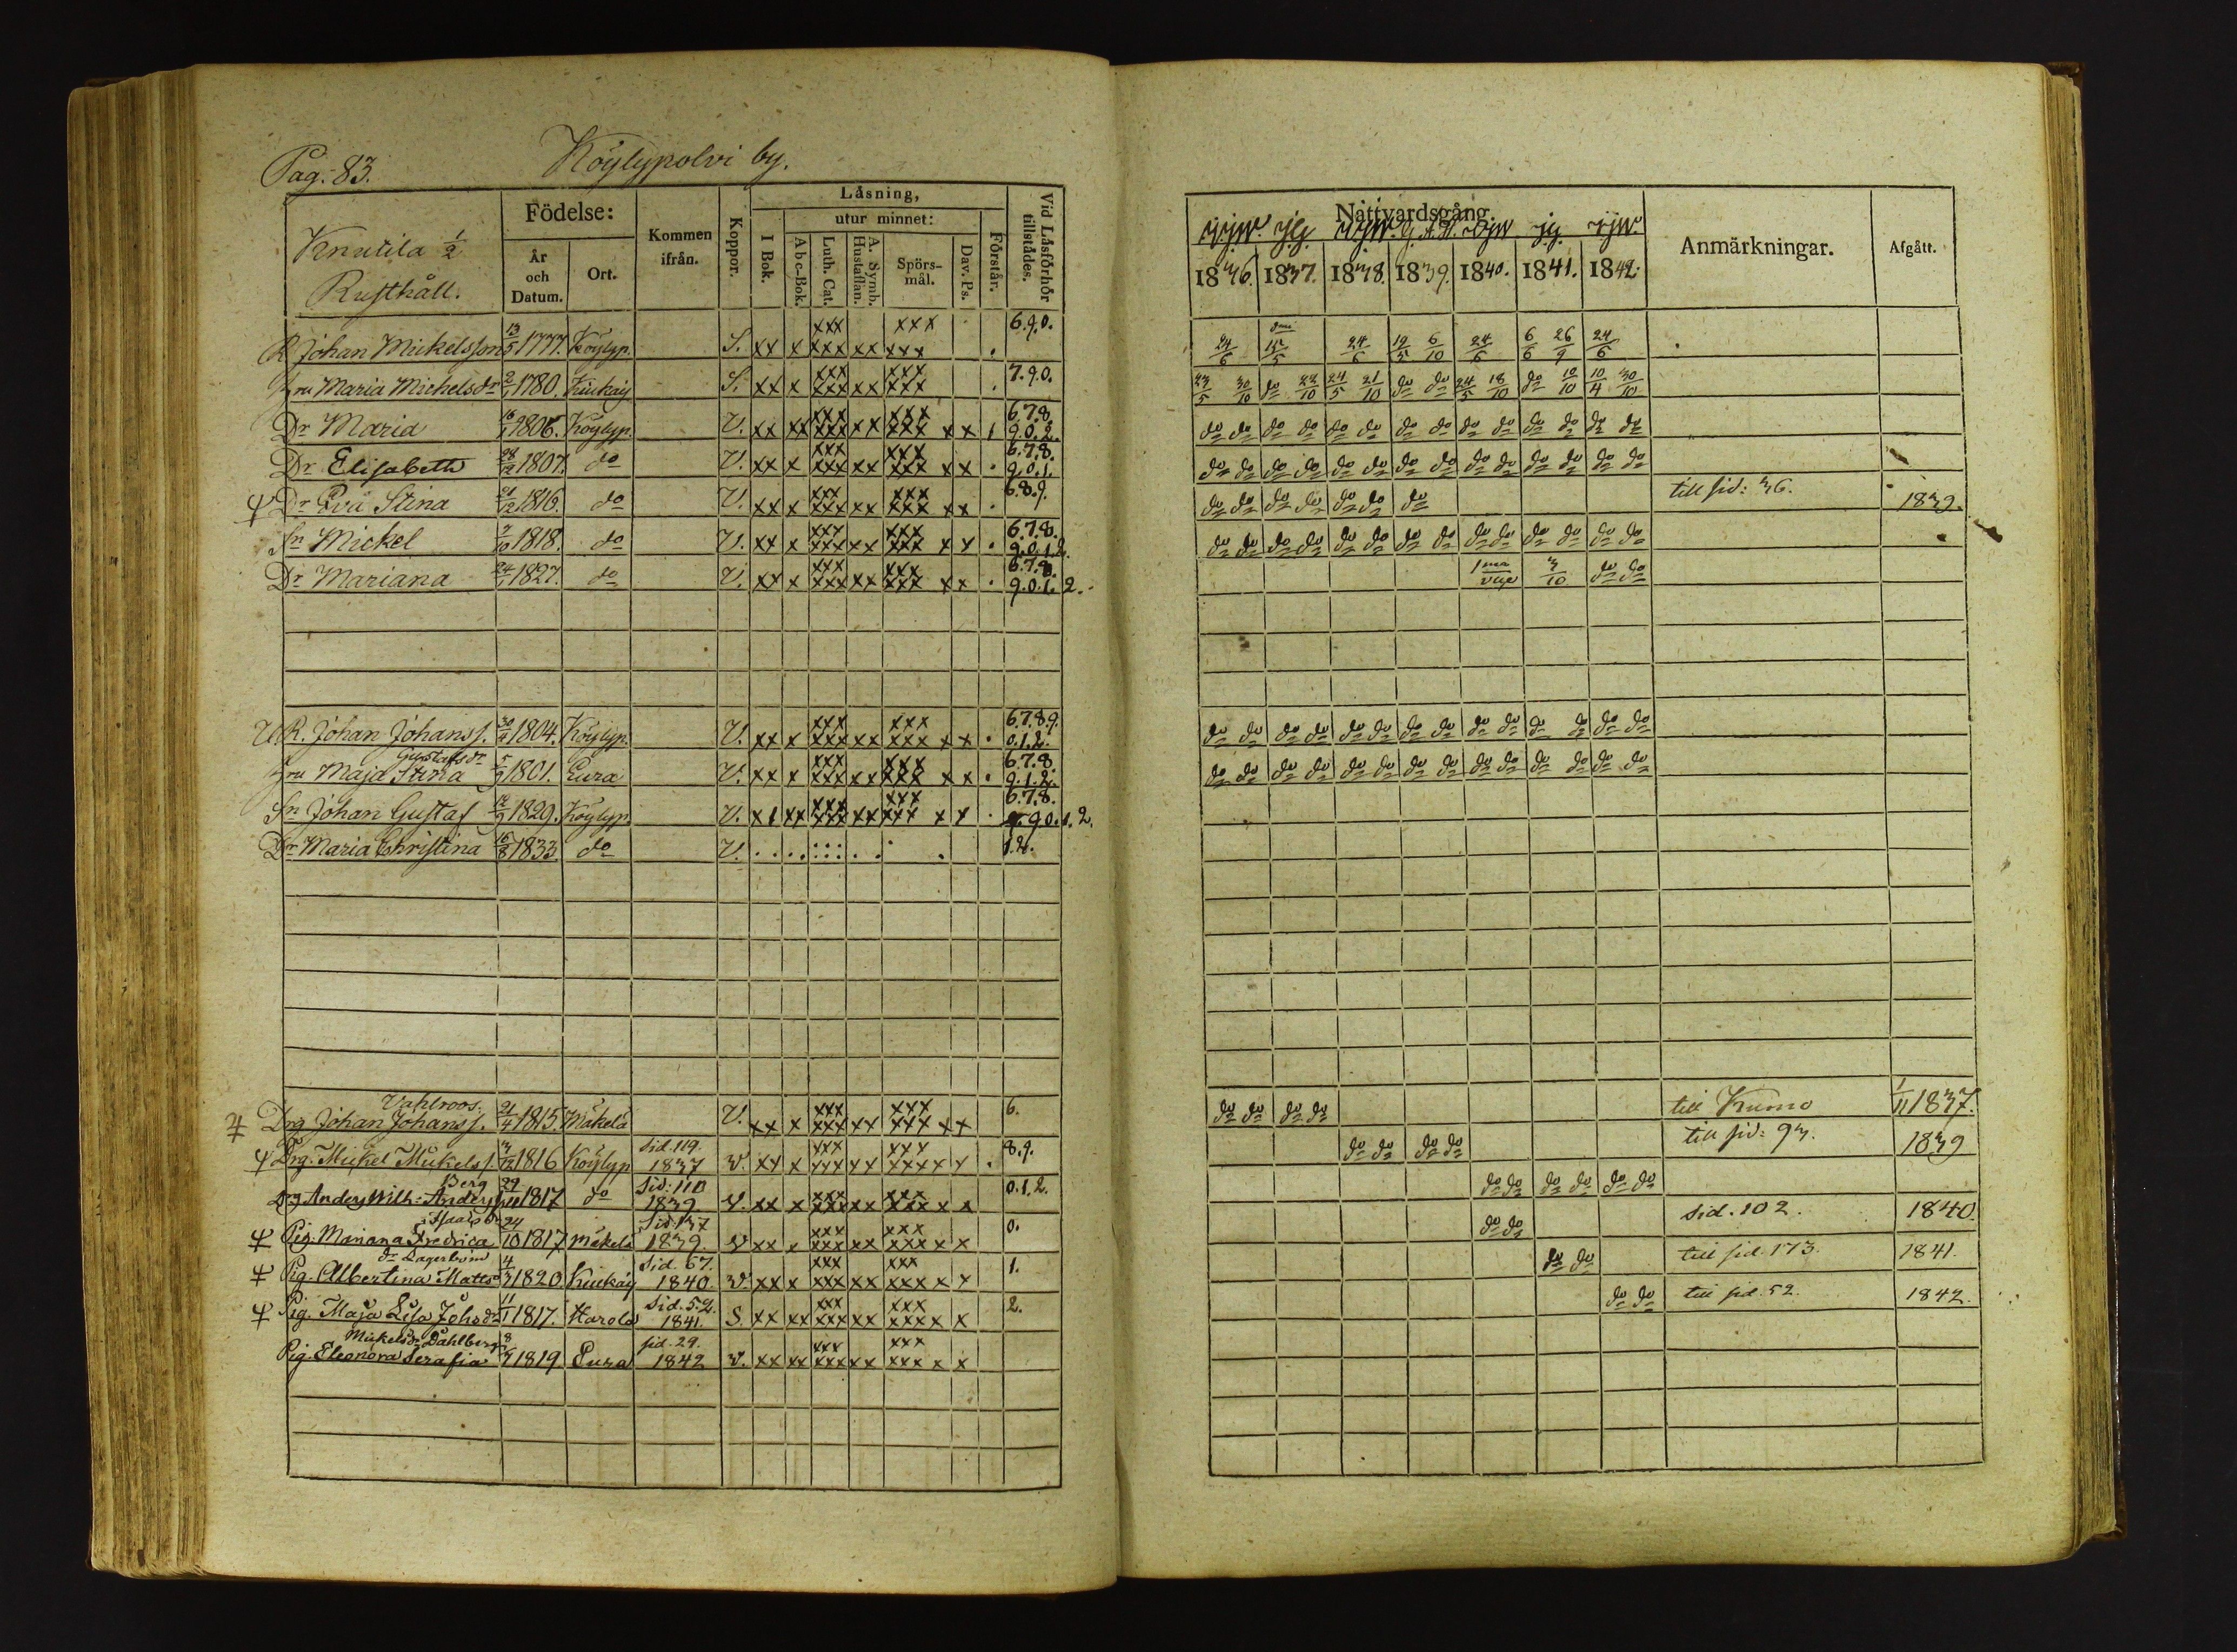 Pag. 83. Köylypolvi by.
Knutila 1/2
Rusthåll.
Födelse:
År och Datum.
Ort.
Kommen ifrån.
Koppor.
Läsning,
I Bok.
utur minnet:
Abc-Bok.
Luth. Cat.
A. Symb. Hustaflan.
Spörsmål.
Dav. Ps.
Förstår.
Vid Läsförhör tillstädes.
Nattvardsgång.
1836. 1837. 1838. 1839. 1840. 1841. 1842.
Anmärkningar.
Afgått.
R Johan Mickelsson 13/5 1777. Köylyp. S. xx x xxx xxx xx xxx xxx . 6.9.0. 24/6 24/6 19/5 6/10 24/6 6/6 26/9 24/6
hru Maria Michelsdr 1780. Kiukais S. xx x xxx xxx xx xxx xxx . 7.9.0. 23/5 30/10 do 22/10 24/5 21/10 do do 24/5 18/10 do 10/10 10/4 30/10
Dr Maria 1806. Köylyp. V. xx xx xxx xxx xx xxx xxx x x 6.7.8. 9.0.2. do do do do do do do do do do do do do do
Dr Elisabeth 28/12 1807. do V. xx x xxx xxx xx xxx xxx x x . 6.7.8. 9.0.1. do do do do do do do do do do do do do do
Dr Eva Stina 21/12 1816. do V. xx x xxx xxx xx xxx xxx x x . 6.8.9. do do do do do do do till sid: 36. 1839.
Sn Mickel 1818. do V. xx x xxx xxx xx xxx xxx x x . 6.7.8. 9.0.1.2. do do do do do do do do do do do do do do
Dr Mariana 24/ 1827. do V. xx x xxx xxx xx xxx xxx x x . 6.7.8. 9.0.1.2. 3/10 do do
R. Johan Johanss. 1804. Köylyp. V. xx x xxx xxx xx xxx xxx x x . 6.7.8.9. 0.1.2. do do do do do do do do do do do do do do
Gustafsdr
hru Maja Stina 1801. Eura V. xx x xxx xxx xx xxx xxx x x . 6.7.8. 9.1.2. do do do do do do do do do do do do do do
Sn Johan Gustaf 1829. Köylyp. V. xx xx xxx xxx xx xxx xxx x x . 6.7.8. 9.0.1.2.
Dr Maria Christina 1833. do V. 1.2.
Vahlroos.
Drg Johan Johanss. 21/4 1815. Mäkelä V. xx x xxx xxx xx xxx xxx x x 6. do do do do till Kumo 1/11 1837.
Drg. Mickel Mickelss. 1816 Köylyp Sid. 119. 1837 V. xx x xxx xxx xx xxx xxx x x . 8.9. do do do do till sid: 93. 1839
Berg
Drg Anders Wilh. Anderss. 29/ 1817 do Sid: 110 1839 V. xx x xxx xxx xx xxx xxx x x 0.1.2. do do do do do do
Isaacsdr
Pig. Mariana Fredrica 24/10 1817 Mäkelä Sid. 137 1839. V xx x xxx xxx xx xxx xxx x x 0. do do Sid. 102. 1840.
dr Lagerbom
Pig. Albertina Matts 4/3 1820. Kiukais Sid. 67. 1840 V. xx x xxx xxx xx xxx xxx x x 1. do do till sid. 173. 1841.
Pig. Maja Lisa Johsdr 11/1 1817. Harola Sid. 52. 1841. S. xx xx xxx xxx xx xxx xxx x x 2. do do till sid. 52. 1842.
Mickelsdr Dahlberg
Pig. Eleonora Serafia 8/3 1819. Eura sid. 29. 1842 V. xx xx xxx xxx xx xxx xxx x x